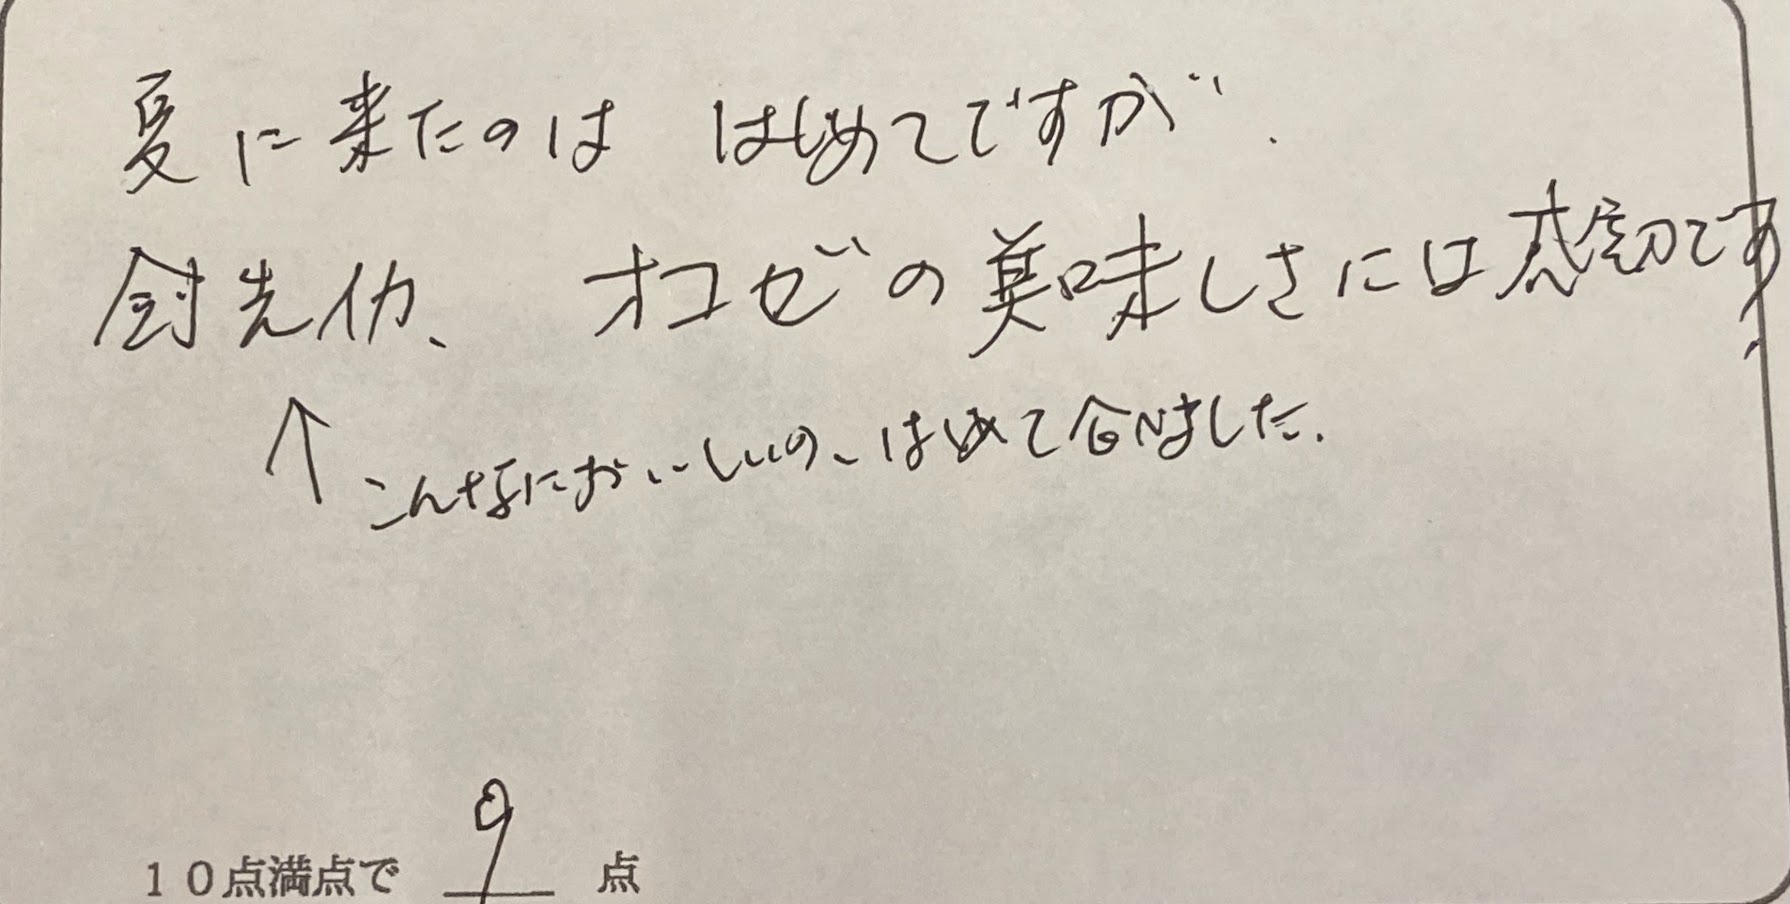 夏に来たのは はじめてですが、
剣先イカ、 オコゼの美味しさには感激です
↑ こんなにおいしいの、はじめて食べました.
10点満点で 9 点